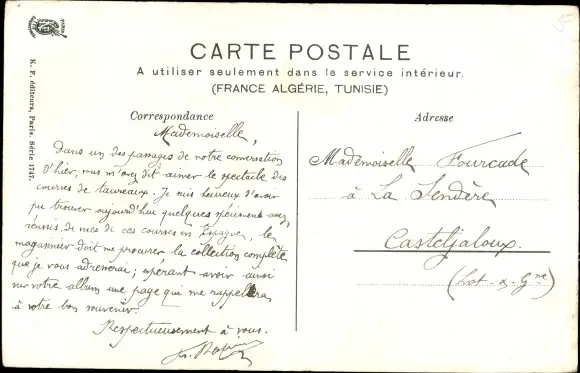 PARIS
K. F. éditeurs, Paris. Série 1747.
CARTE POSTALE
A utiliser seulement dans le service intérieur.
(FRANCE ALGÉRIE, TUNISIE)
Correspondance
Mademoiselle,
Dans un des passages de notre conversation
d'hier, vous m'avez dit aimer le spectacle des
courses de taureaux. Je suis heureux d'avoir
pu trouver aujourd'hui quelques spécimens assez
réussis de vues de ces courses en Espagne, le
magasinier doit me procurer la collection complète
que je vous adresserai; espérant avoir ainsi
sur votre album une page qui me rappellera
à votre bon souvenir.
Respectueusement à vous.
Adresse
Mademoiselle Fourcade
à La Sendère
Casteljaloux.
(Lot-&-Gne)